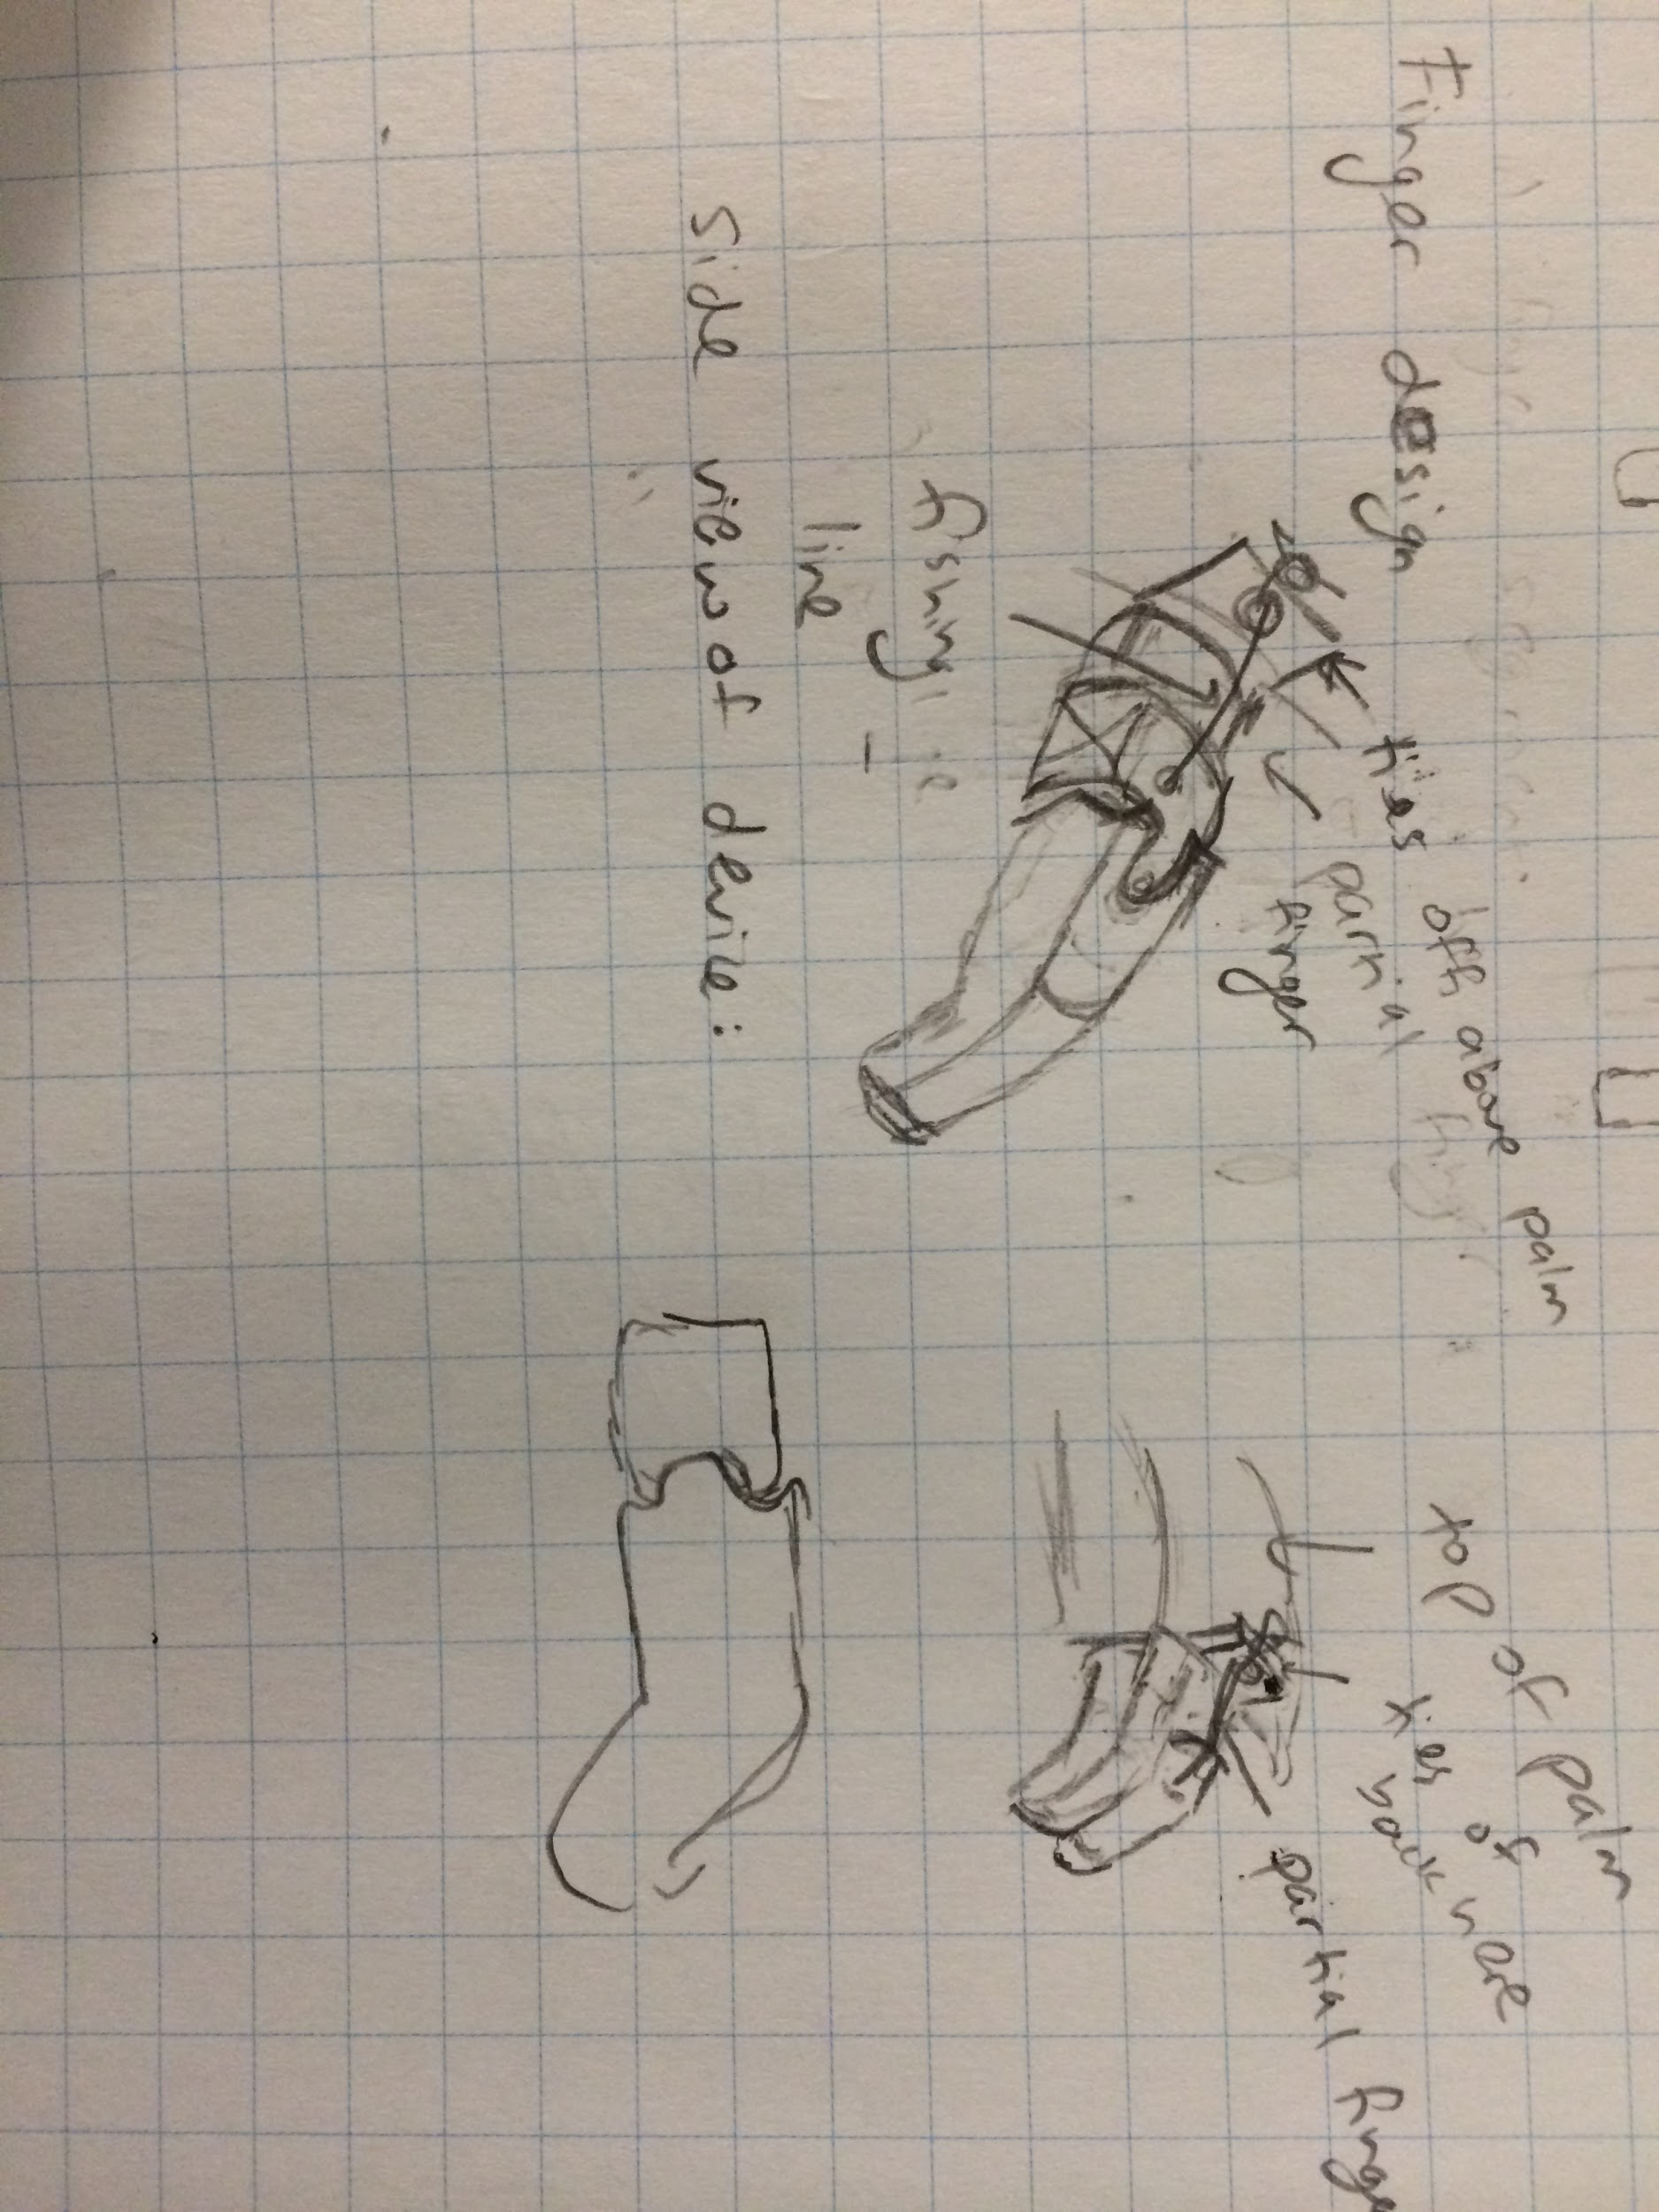 Finger design
ties off above palm
partial
finger
fishing
line
top of palm
ties of
back
partial finge
side view of device: